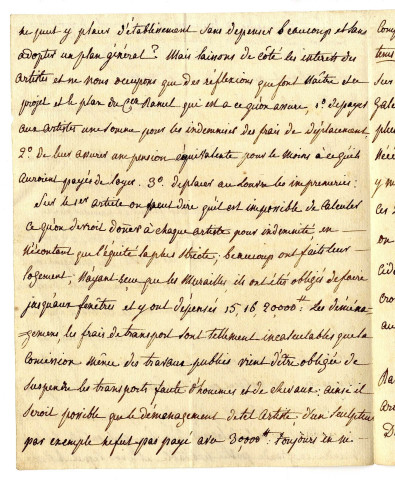 ne peut y placer d'établissement sans depenser beaucoup et sans
adopter un plan général? Mais laissons de côté les interets des
artistes et ne nous occupons que des reflexions que font naître ce
projet et le plan du Cen Ranel qui est a ce qu'on assure, 1o. de payer
aux artistes une somme pour les indemniser des frais de déplacement
2o. de leur assurer une pension équivalente pour le moins à ce qu'ils
auroient payés de loyer. 3o. de placer au Louvre les imprimeries:
Sur le 1er article on peut dire qu'il est impossible de calculer
ce qu'on devroit doner à chaque artiste pour indemnité en
n'écoutant que l'équité la plus stricte; beaucoup ont fait leur
logement; n'ayant eçu que les Murailles, ils ont été obligés de faire
jusqu'aux fenêtres et y ont dépensés 15, 16 20,000tt. Les déména-
-gemens, les frais de transport sont tellement incalculables que la
Comission même des travaux publics vient d'être obligée de
suspendre les transports faute d'homes et de chevaux; ainsi il
seroit possible que le démenagement de tel Artiste, d'un sculpteur
par exemple ne fut pas payé avec 30,000tt: toujours en ne
Com
tems
ses
Gale
plus
néce
y m
ces 2
on
cide
cro
au
Da
ar
D